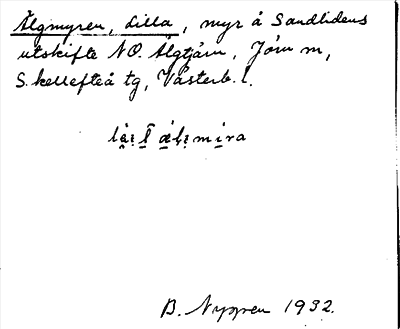 Älgmyren, Lilla, myr å Sandlidens
utskifte NO. Älgtjärn, Jörn sn,
Skellefteå tg, Västerb. l.
B. Nygren 1932.